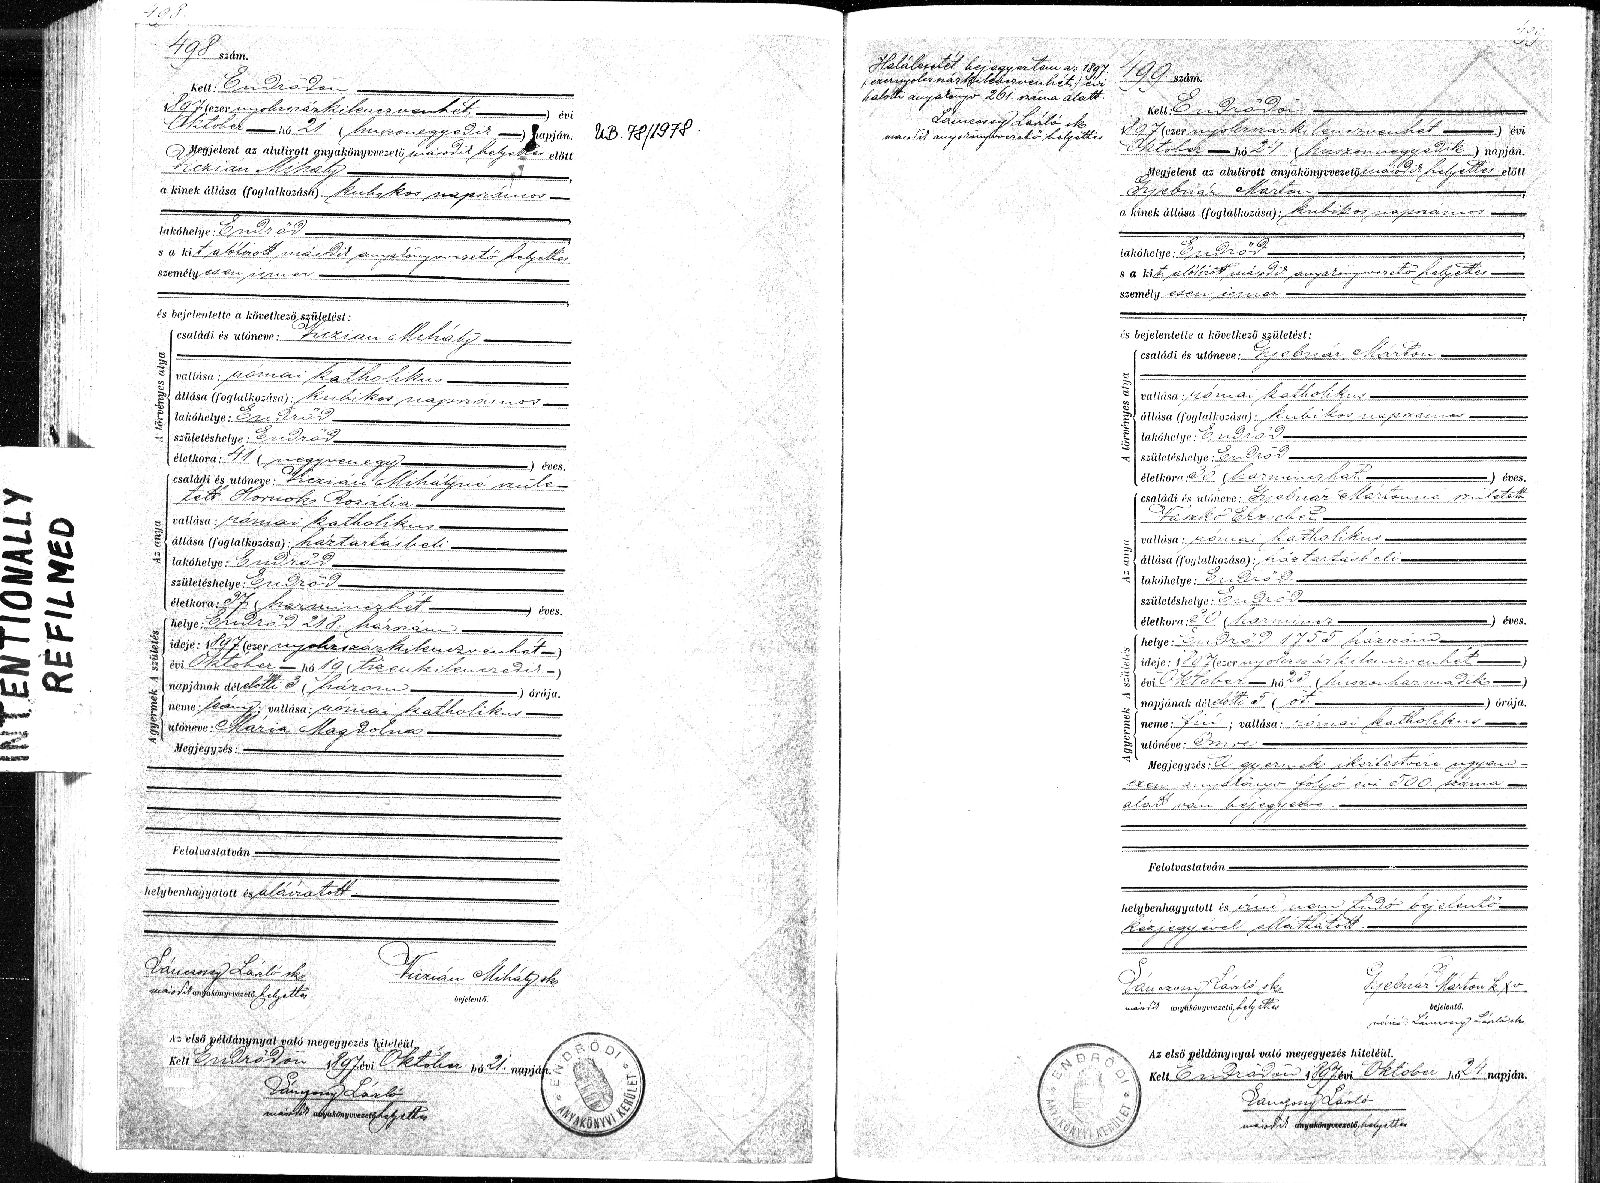 498.
498 szám.
Kelt: Endrődön
1897 (ezer nyolcszázkilenczvenhét) évi
Október hó 21 (huszonegyedik) napján.
U.B. 78/1978.
Megjelent az alulirott anyakönyvvezető, második helyettes előtt
Viczián Mihály
a kinek állása (foglalkozása): kubikos napszámos
lakóhelye: Endrőd
s a kit alólirott második anyakönyvvezető helyettes
személyesen ismer
és bejelentette a következő születést:
A törvényes atya
családi és utóneve: Viczián Mihály
vallása: római katholikus
állása (foglalkozása): kubikos napszámos
lakóhelye: Endrőd
születéshelye: Endrőd
életkora: 41 (negyvenegy) éves.
Az anya
családi és utóneve: Viczián Mihályné szüle-
tett Hornok Rozália
vallása: római katholikus
állása (foglalkozása): háztartásbeli
lakóhelye: Endrőd
születéshelye: Endrőd
életkora: 37 (harminczhét) éves.
A születés
helye: Endrőd 218. házszám
ideje: 1897 (ezer nyolcszázkilenczvenhét)
évi Október hó 19 (tizenkilenczedik)
napjának délelőtti 3 (három) órája.
A gyermek
neme: leány; vallása: római katholikus
utóneve: Mária Magdolna
Megjegyzés:
Felolvastatván
helybenhagyatott és aláíratott
Lánczosy László sk.
második anyakönyvvezető, helyettes
Viczián Mihály sk
bejelentő.
Az első példánynyal való megegyezés hiteléül.
Kelt Endrődön 1897 évi Október hó 21. napján.
Lánczosy László
második anyakönyvvezető helyettes
ENDRŐDI
ANYAKÖNYVI KERÜLET
INTENTIONALLY
REFILMED
499
Halálesetét bejegyeztem az 1897
(ezernyolczszázkilenczvenhét) évi
halotti anyakönyv 261. száma alatt.
Lánczosy László sk.
második anyakönyvvezető helyettes
499 szám.
Kelt: Endrődön
1897 (ezer nyolczszázkilenczvenhét) évi
Október hó 24 (huszonnegyedik) napján.
Megjelent az alulirott anyakönyvvezető második helyettes előtt
Gyebnár Márton
a kinek állása (foglalkozása): kubikos napszámos
lakóhelye: Endrőd
s a kit alólirott második anyakönyvvezető helyettes
személyesen ismer
és bejelentette a következő születést:
A törvényes atya
családi és utóneve: Gyebnár Márton
vallása: római katholikus
állása (foglalkozása): kubikos napszámos
lakóhelye: Endrőd
születéshelye: Endrőd
életkora: 36 (harminczhat) éves.
Az anya
családi és utóneve: Gyebnár Mártonné született
Erzsébet
vallása: római katholikus
állása (foglalkozása): háztartásbeli
lakóhelye: Endrőd
születéshelye: Endrőd
életkora: 30 (harmincz) éves.
A születés
helye: Endrőd 1755 házszám
ideje: 1897 (ezer nyolczszázkilenczvenhét)
évi Október hó 23 (huszonharmadik)
napjának délelőtti 5 (öt) órája.
A gyermek
neme: fiú; vallása: római katholikus
utóneve: Imre
Megjegyzés: A gyermek ikertestvére ugyan-
ezen anyakönyv folyó évi 500 száma
alatt van bejegyezve.
Felolvastatván
helybenhagyatott és írni nem tudó bejelentő
kézjegyével elláttatott.
Lánczosy László sk.
második anyakönyvvezető, helyettes
Gyebnár Márton k x v.
bejelentő.
Lánczosy László sk
Az első példánynyal való megegyezés hiteléül.
Kelt Endrődön 1897 évi Október hó 24 napján.
Lánczosy László
második anyakönyvvezető, helyettes
ENDRŐDI
ANYAKÖNYVI KERÜLET